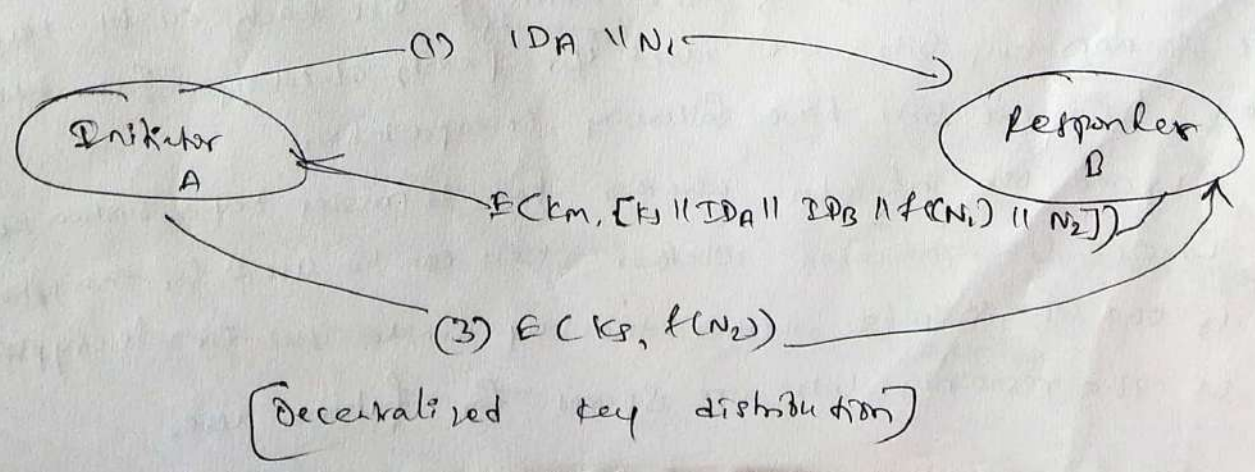 (1) IDA || N1
Initiator
A
Responder
B
E(Km, [Ks || IDA || IDB || f(N1) || N2])
(3) E(Ks, f(N2))
[Decentralized key distribution]